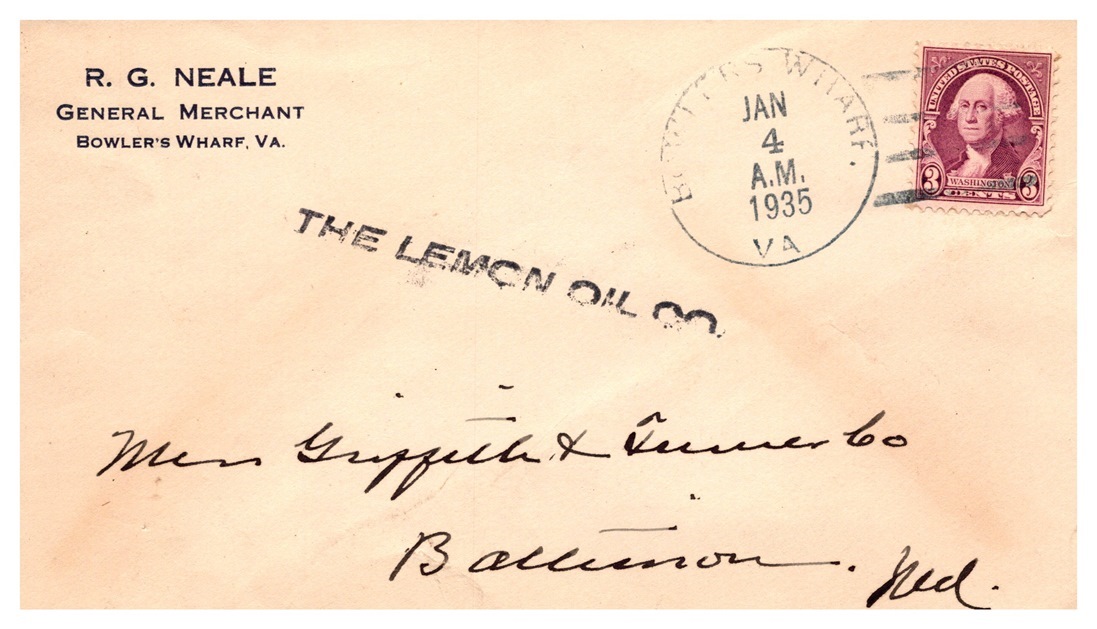 R. G. NEALE
GENERAL MERCHANT
BOWLER'S WHARF, VA.
BOWLERS WHARF.
JAN
4
A.M.
1935
VA
UNITED STATES POSTAGE
WASHINGTON
3 3
CENTS
THE LEMON OIL CO.
Mess Griffith & Turner Co
Baltimore. Md.